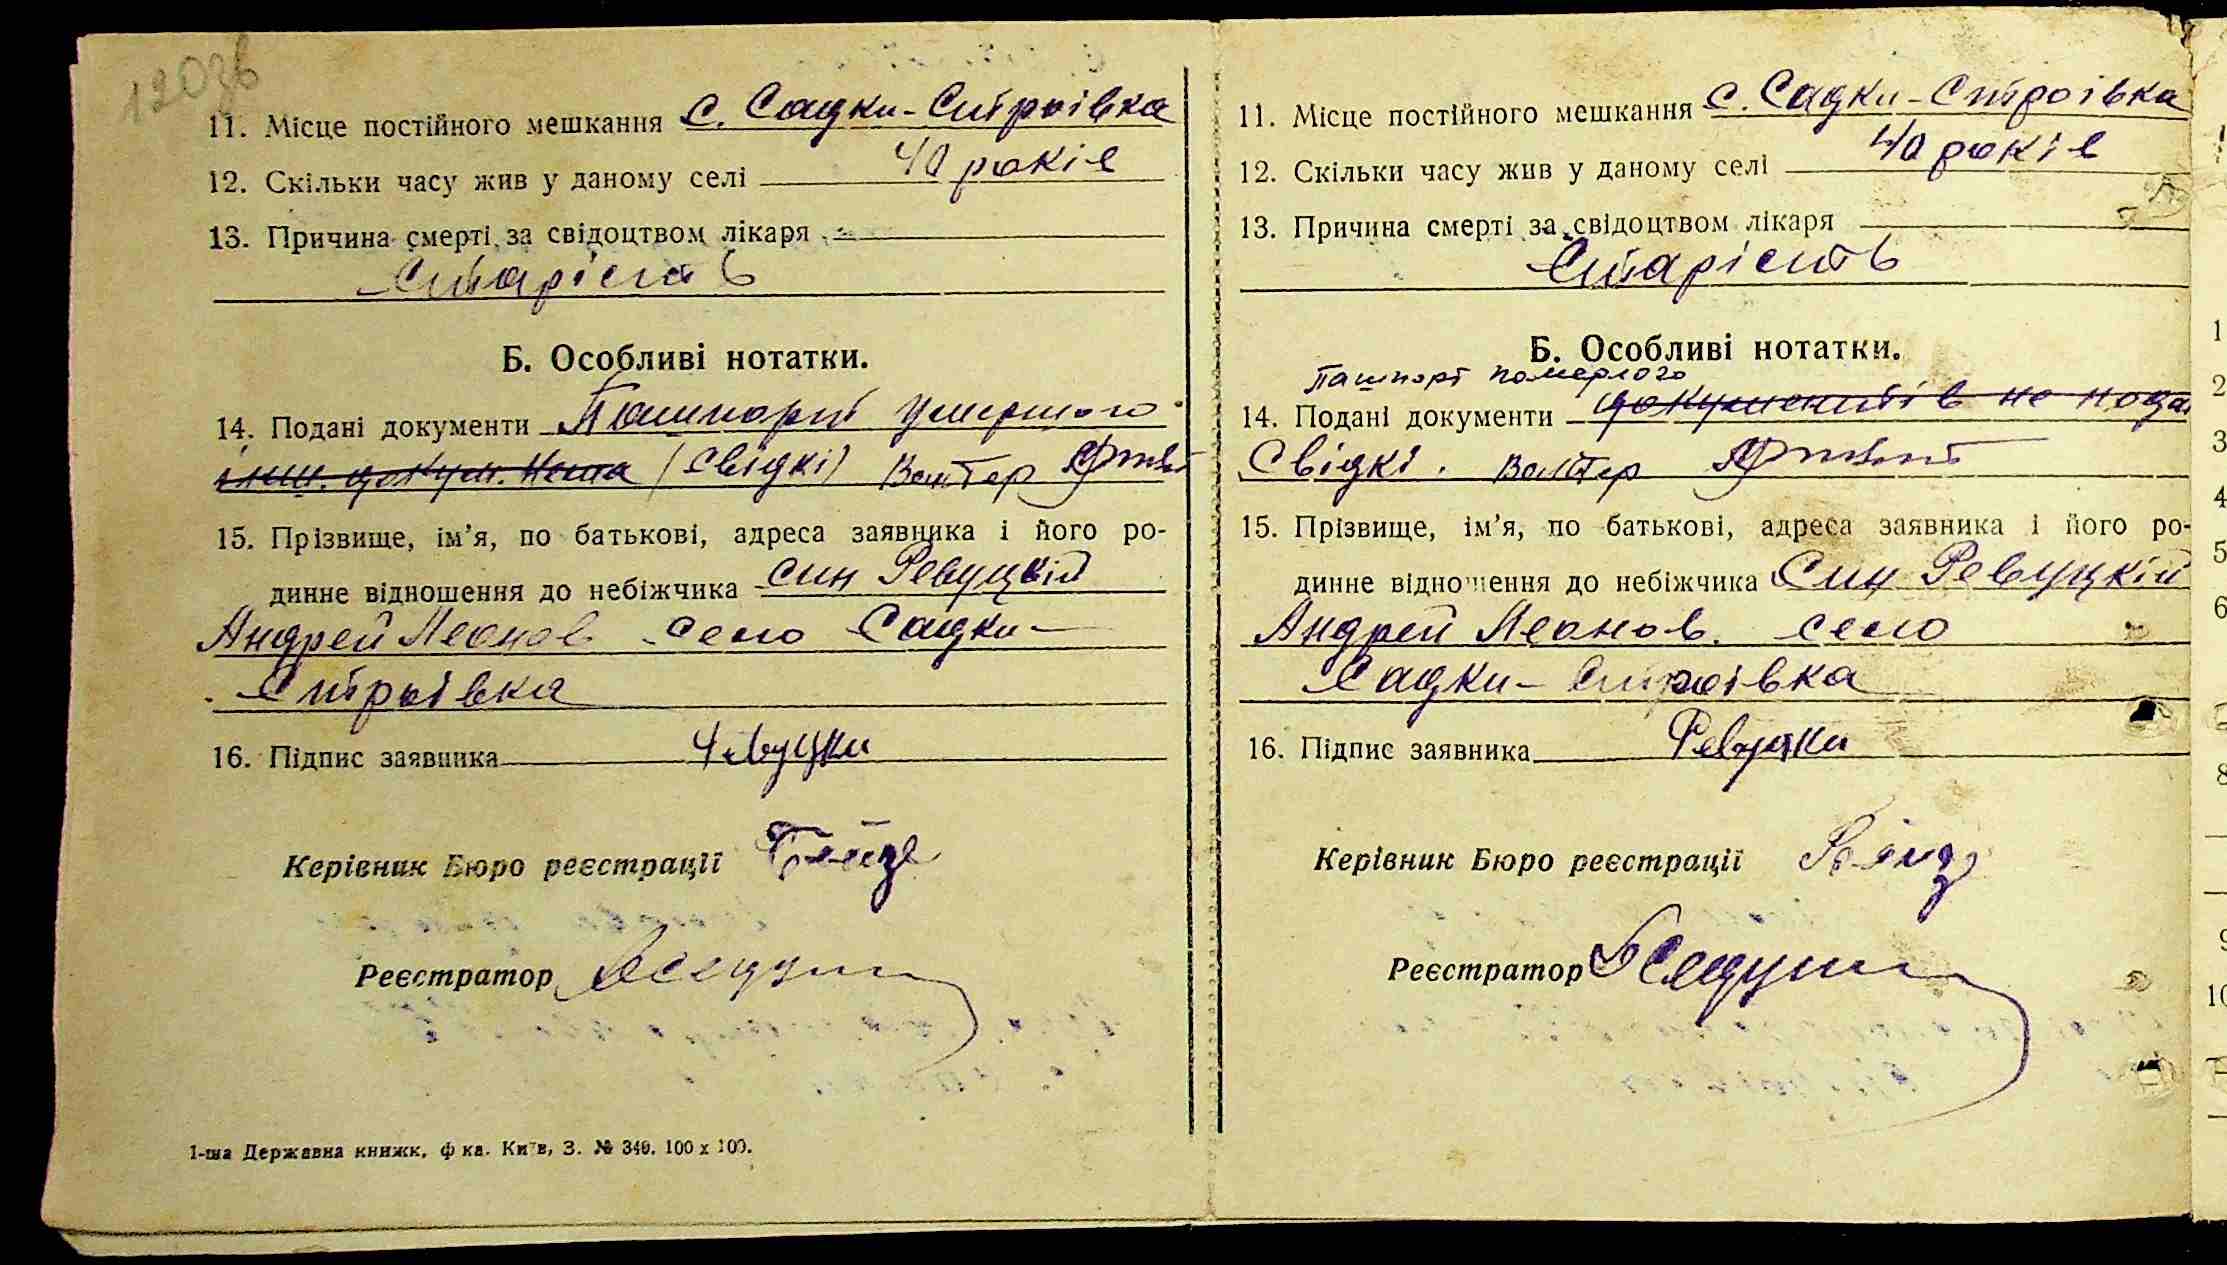 120зв
11. Місце постійного мешкання с. Садки-Строівка
12. Скільки часу жив у даному селі 40 років
13. Причина смерті за свідоцтвом лікаря
Старість
Б. Особливі нотатки.
14. Подані документи Пашпорт умершого
інш. докум. нема (свідкі) Вантер
15. Прізвище, ім’я, по батькові, адреса заявника і його ро-
динне відношення до небіжчика син Ревуцкій
Андрей Леонов село Садки-
Строівка
16. Підпис заявника
Керівник Бюро реєстрації
Реєстратор
1-ша Державна книжк. ф-ка. Київ, З. № 340. 100 х 100.
11. Місце постійного мешкання с. Садки-Строівка
12. Скільки часу жив у даному селі 40 років
13. Причина смерті за свідоцтвом лікаря
Старість
Б. Особливі нотатки.
Пашпорт померлого
14. Подані документи документів не пода
Свідкі.
15. Прізвище, ім’я, по батькові, адреса заявника і його ро-
динне відношення до небіжчика Син Ревуцкій
Андрей Леонов. село
Садки-Строівка
16. Підпис заявника Ревуцки
Керівник Бюро реєстрації
Реєстратор
1
2
3
4
5
6
8
9
10